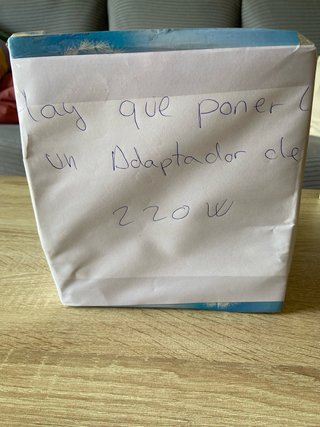 Hay que poner
un Adaptador de
220 W